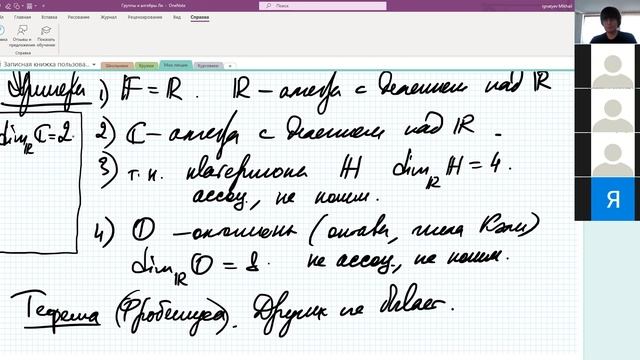 Группы и алгебры Ли - OneNote
Ignatyev Mikhail
Рисование
Журнал
Рецензирование
Вид
Справка
Отзывы и предложения
Показать обучение
Справка
Записная книжка пользова...
Школьники
Кружки
Мои лекции
Курсовики
Примеры 1) 𝔽 = ℝ. ℝ - алгебра с делением над ℝ
dim_ℝ ℂ = 2.
2) ℂ - алгебра с делением над ℝ.
3) т. н. кватернионы ℍ dim_ℝ ℍ = 4.
ассоц., не комм.
4) 𝕆 - октонионы (октавы, числа Кэли)
dim_ℝ 𝕆 = 8. не ассоц., не комм.
Теорема (Фробениуса). Других не бывает.
Я